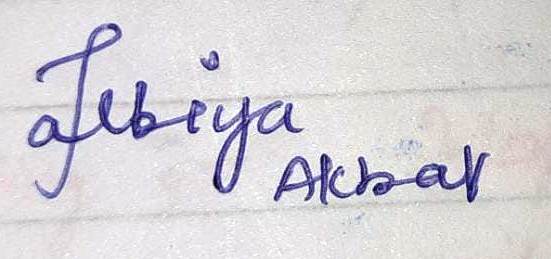 Albiya
Akbar